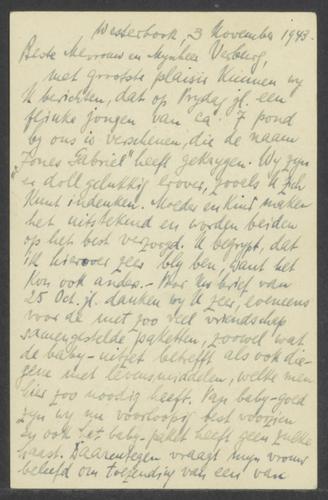 Westerbork, 3 November 1943.
Beste Mevrouw en Mynheer Verburg,
met grootste plaisir kunnen wy
U berichten, dat op Vrydag jl. een
flinke jongen van ca. 7 pond
by ons is verschenen, die de naam
Jones Gabriel heeft gekregen. Wy zyn
er dolgelukkig erover, zooals U zich
kunt indenken. Moeder en kind maken
het uitstekend en worden beiden
op het best verzorgd. U begrypt, dat
ik hierover zeer bly ben, want het
kon ook anders. - Voor Uw brief van
25 Oct. jl. danken wy U zeer, eveneens
voor de met zoo veel vriendschap
samengestelde paketten, zoowel wat
de baby-uitzet betreft als ook die-
gene met levensmiddelen, welke men
hier zoo noodig heeft. Van baby-goed
zyn wy nu voorloopig best voorzien
en ook het baby-paket heeft geen
haast. Daarentegen vraagt myn vrouw
beleefd om toezending van een van